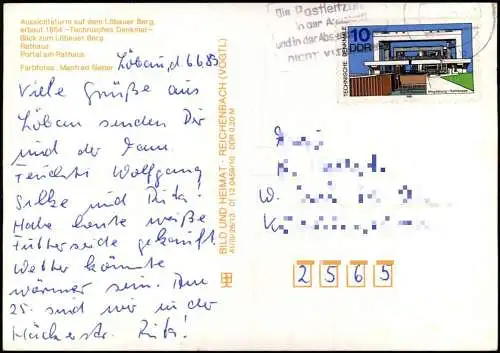 Aussichtsturm auf dem Löbauer Berg,
erbaut 1854 –Technisches Denkmal–
Blick zum Löbauer Berg
Rathaus
Portal am Rathaus
Farbfotos: Manfred
Löbau, d. 6.6.85
Viele Grüße aus
Löbau senden Dir
und der Fam.
Wolfgang
Silke und Rita!
Habe heute weiße
Futterseide gekauft.
Wetter könnte
wärmer sein. Am
25. sind wir in der
Rita!
BILD UND HEIMAT · REICHENBACH (VOGTL)
DDR 0,20 M
Die Postleitzahl
in der
und in der
NICHT
10
DDR
TECHNISCHE DENKMALE
2 5 6 5